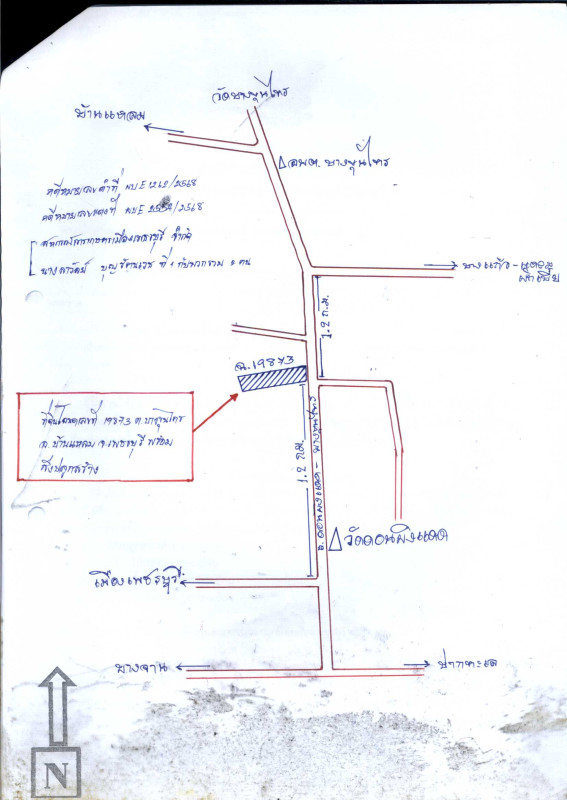 วัดบางขุนไทร
บ้านแหลม
อบต. บางขุนไทร
คดีหมายเลขดำที่ ผบE 1262/2568
คดีหมายเลขแดงที่ ผบE 2552/2568
สหกรณ์การเกษตรเมืองเพชรบุรี จำกัด
ที่ 1 กับพวกรวม 2 คน
บางแก้ว -
1.2 ก.ม.
ฉ.19873
ที่ดินโฉนดเลขที่ 19873 ต.บางขุนไทร
อ.บ้านแหลม จ.เพชรบุรี พร้อม
สิ่งปลูกสร้าง
1.2 ก.ม.
ถ.ดอนผิงแดด - บางขุนไทร
วัดดอนผิงแดด
เมืองเพชรบุรี
บางจาน
ปากทะเล
N